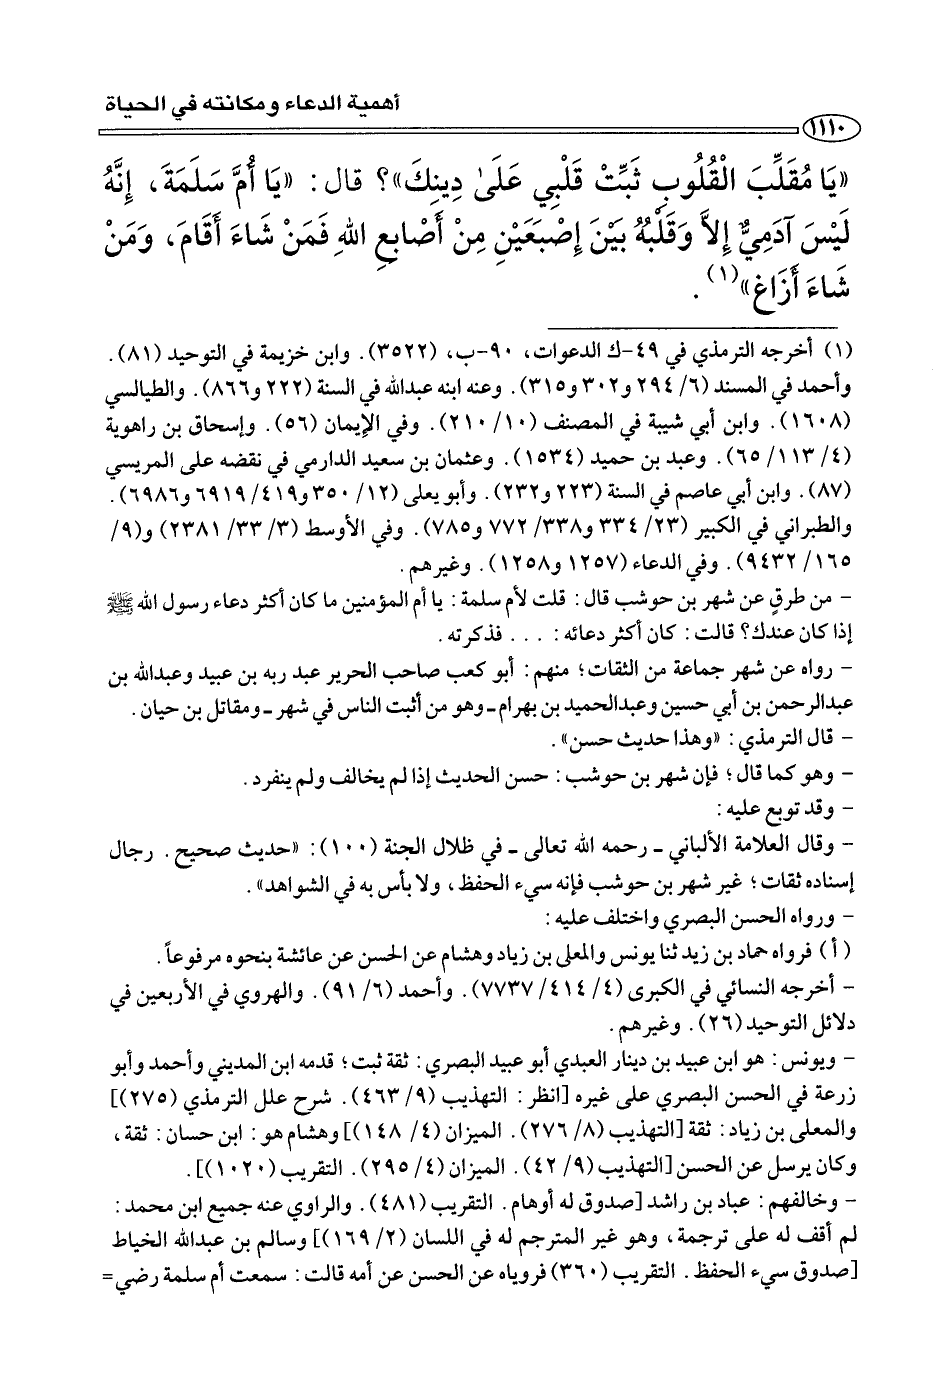 أهمية الدعاء ومكانته في الحياة
١١١٠
«يَا مُقَلِّبَ الْقُلُوبِ ثَبِّتْ قَلْبِي عَلَىٰ دِينِكَ»؟ قال: «يَا أُمَّ سَلَمَةَ، إِنَّهُ
لَيْسَ آدَمِيٌّ إِلاَّ وَقَلْبُهُ بَيْنَ إِصْبَعَيْنِ مِنْ أَصَابِعِ اللهِ فَمَنْ شَاءَ أَقَامَ، وَمَنْ
شَاءَ أَزَاغَ»(١).
(١) أخرجه الترمذي في ٤٩-ك الدعوات، ٩٠-ب، (٣٥٢٢). وابن خزيمة في التوحيد (٨١).
وأحمد في المسند (٦/ ٢٩٤ و٣٠٢ و٣١٥). وعنه ابنه عبدالله في السنة (٢٢٢ و٨٦٦). والطيالسي
(١٦٠٨). وابن أبي شيبة في المصنف (١٠/ ٢١٠). وفي الإيمان (٥٦). وإسحاق بن راهوية
(٤/ ١١٣/ ٦٥). وعبد بن حميد (١٥٣٤). وعثمان بن سعيد الدارمي في نقضه على المريسي
(٨٧). وابن أبي عاصم في السنة (٢٢٣ و٢٣٢). وأبو يعلى (١٢/ ٣٥٠ و٤١٩/ ٦٩١٩ و٦٩٨٦).
والطبراني في الكبير (٢٣/ ٣٣٤ و٣٣٨/ ٧٧٢ و٧٨٥). وفي الأوسط (٣/ ٣٣/ ٢٣٨١) و(٩/
١٦٥/ ٩٤٣٢). وفي الدعاء (١٢٥٧ و١٢٥٨). وغيرهم.
- من طرقٍ عن شهر بن حوشب قال: قلت لأم سلمة: يا أم المؤمنين ما كان أكثر دعاء رسول الله ﷺ
إذا كان عندك؟ قالت: كان أكثر دعائه: ... فذكرته.
- رواه عن شهر جماعة من الثقات؛ منهم: أبو كعب صاحب الحرير عبد ربه بن عبيد وعبدالله بن
عبدالرحمن بن أبي حسين وعبدالحميد بن بهرام ـ وهو من أثبت الناس في شهر ـ ومقاتل بن حيان.
- قال الترمذي: «وهذا حديث حسن».
- وهو كما قال؛ فإن شهر بن حوشب: حسن الحديث إذا لم يخالف ولم ينفرد.
- وقد توبع عليه:
- وقال العلامة الألباني ـ رحمه الله تعالى ـ في ظلال الجنة (١٠٠): «حديث صحيح. رجال
إسناده ثقات؛ غير شهر بن حوشب فإنه سيء الحفظ، ولا بأس به في الشواهد».
- ورواه الحسن البصري واختلف عليه:
(أ) فرواه حماد بن زيد ثنا يونس والمعلى بن زياد وهشام عن الحسن عن عائشة بنحوه مرفوعاً.
- أخرجه النسائي في الكبرى (٤/ ٤١٤/ ٧٧٣٧). وأحمد (٦/ ٩١). والهروي في الأربعين في
دلائل التوحيد (٢٦). وغيرهم.
- ويونس: هو ابن عبيد بن دينار العبدي أبو عبيد البصري: ثقة ثبت؛ قدمه ابن المديني وأحمد وأبو
زرعة في الحسن البصري على غيره [انظر: التهذيب (٩/ ٤٦٣). شرح علل الترمذي (٢٧٥)]
والمعلى بن زياد: ثقة [التهذيب (٨/ ٢٧٦). الميزان (٤/ ١٤٨)] وهشام هو: ابن حسان: ثقة،
وكان يرسل عن الحسن [التهذيب (٩/ ٤٢). الميزان (٤/ ٢٩٥). التقريب (١٠٢٠)].
- وخالفهم: عباد بن راشد [صدوق له أوهام. التقريب (٤٨١). والراوي عنه جميع ابن محمد:
لم أقف له على ترجمة، وهو غير المترجم له في اللسان (٢/ ١٦٩)] وسالم بن عبدالله الخياط
[صدوق سيء الحفظ. التقريب (٣٦٠) فروياه عن الحسن عن أمه قالت: سمعت أم سلمة رضي=